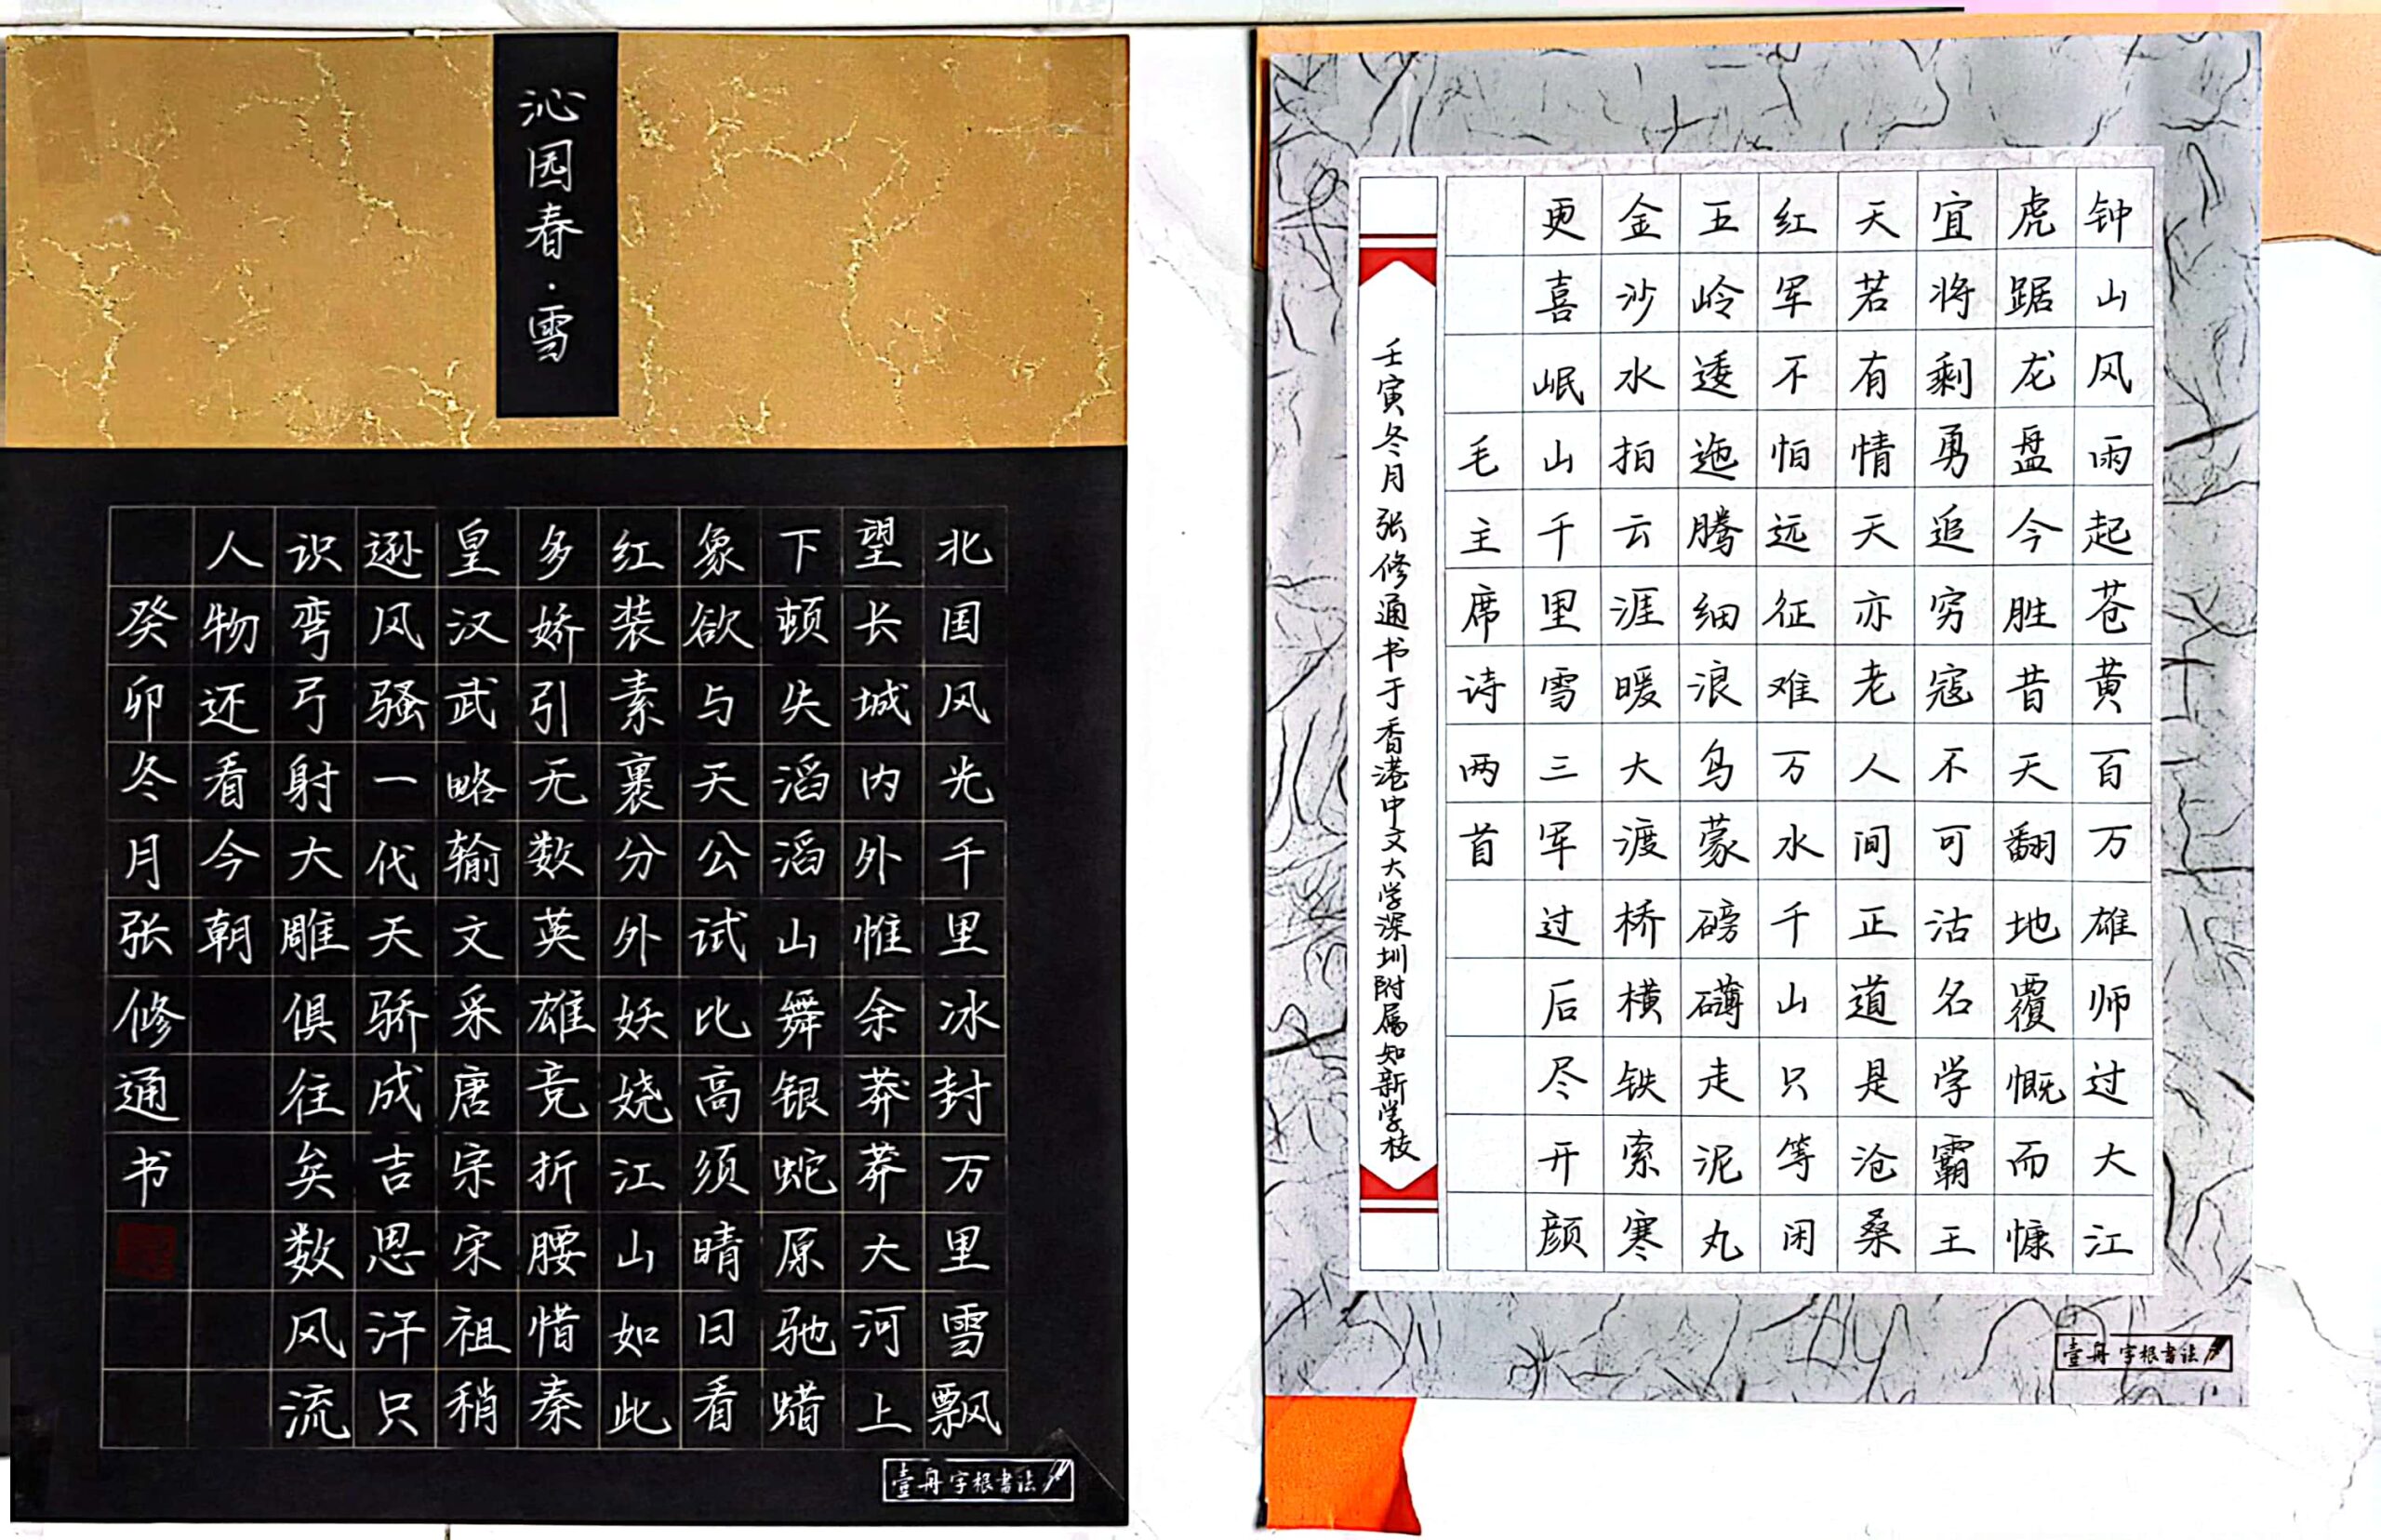 沁园春·雪
北国风光千里冰封万里雪飘
望长城内外惟余莽莽大河上
下顿失滔滔山舞银蛇原驰蜡
象欲与天公试比高须晴日看
红装素裹分外妖娆江山如此
多娇引无数英雄竞折腰惜秦
皇汉武略输文采唐宗宋祖稍
逊风骚一代天骄成吉思汗只
识弯弓射大雕俱往矣数风流
人物还看今朝
癸卯冬月张修通书
壹舟字根书法
钟山风雨起苍黄百万雄师过大江
虎踞龙盘今胜昔天翻地覆慨而慷
宜将剩勇追穷寇不可沽名学霸王
天若有情天亦老人间正道是沧桑
红军不怕远征难万水千山只等闲
五岭逶迤腾细浪乌蒙磅礴走泥丸
金沙水拍云涯暖大渡桥横铁索寒
更喜岷山千里雪三军过后尽开颜
毛主席诗两首
壬寅冬月张修通书于香港中文大学深圳附属知新学校
壹舟字根书法